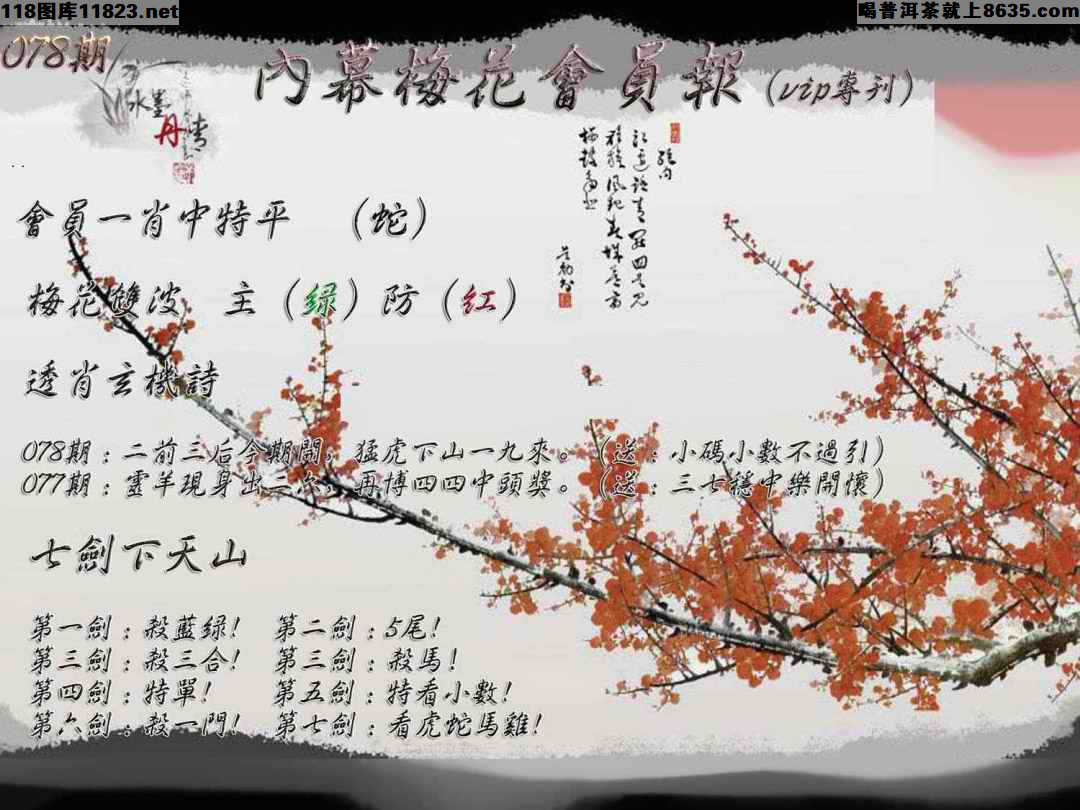 118图库11823.net
喝普洱茶就上8635.com
078期
內幕梅花會員報(vip專刊)
水墨
丹青
會員一肖中特平 （蛇）
梅花雙波 主（绿）防（红）
透肖玄機詩
078期：二前三后今期開，猛虎下山一九來。（送：小碼小數不過引）
077期：靈羊現身出二六，再博四四中頭獎。（送：三七穩中樂開懷）
七劍下天山
第一劍：殺藍绿！ 第二劍：5尾！
第三劍：殺三合！ 第三劍：殺馬！
第四劍：特單！ 第五劍：特看小數！
第六劍：殺一門！ 第七劍：看虎蛇馬雞！